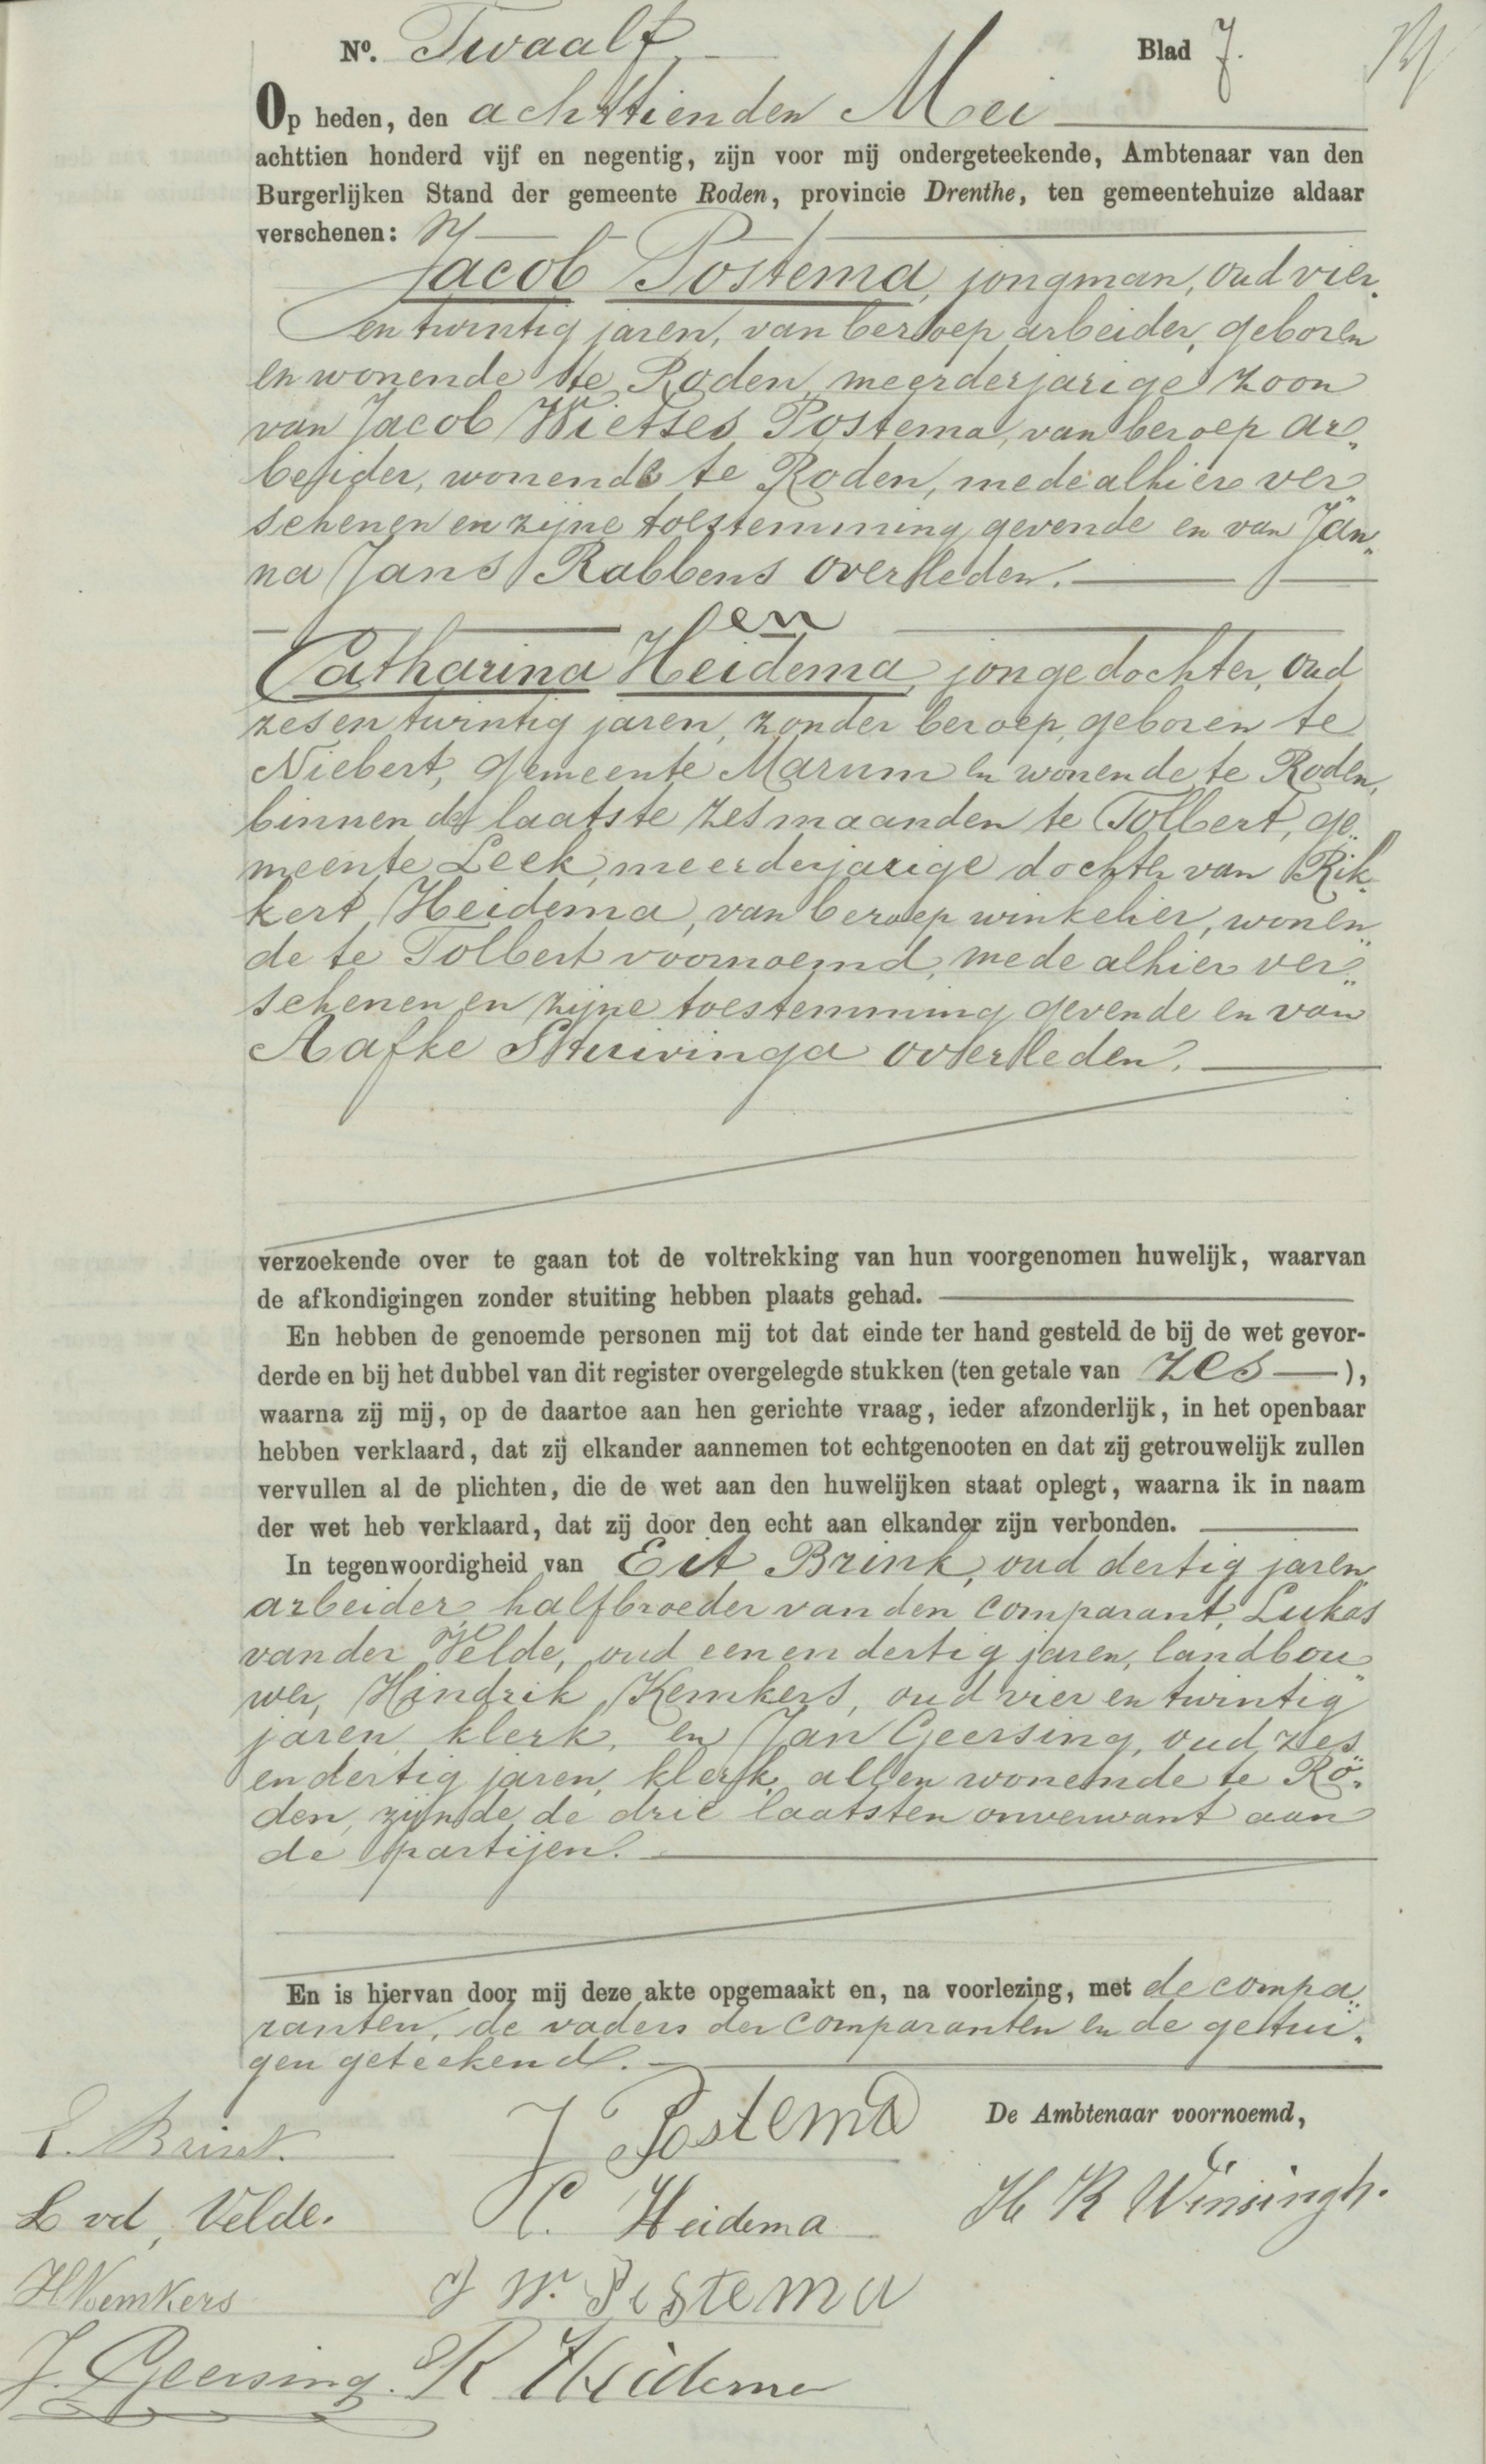 Nº. Twaalf Blad 7.
Op heden, den achttienden Mei
achttien honderd vijf en negentig, zijn voor mij ondergeteekende, Ambtenaar van den
Burgerlijken Stand der gemeente Roden, provincie Drenthe, ten gemeentehuize aldaar
verschenen:
Jacob Postema, jongman, oud vier„
en twintig jaren, van beroep arbeider, geboren
en wonende te Roden, meerderjarige zoon
van Jacob Wietses Postema, van beroep ar„
beider, wonende te Roden, mede alhier ver„
schenen en zijne toestemming gevende en van Jan„
na Jans Rabbens overleden.
en
Catharina Heidema, jongedochter, oud
zes en twintig jaren, zonder beroep, geboren te
Niebert, gemeente Marum en wonende te Roden,
binnen de laatste zes maanden te Tolbert, ge„
meente Leek, meerderjarige dochter van Rik„
kert Heidema, van beroep winkelier, wonen„
de te Tolbert voornoemd, mede alhier ver„
schenen en zijne toestemming gevende en van
Aafke Stuivinga overleden.
verzoekende over te gaan tot de voltrekking van hun voorgenomen huwelijk, waarvan
de afkondigingen zonder stuiting hebben plaats gehad.
En hebben de genoemde personen mij tot dat einde ter hand gesteld de bij de wet gevor-
derde en bij het dubbel van dit register overgelegde stukken (ten getale van zes),
waarna zij mij, op de daartoe aan hen gerichte vraag, ieder afzonderlijk, in het openbaar
hebben verklaard, dat zij elkander aannemen tot echtgenooten en dat zij getrouwelijk zullen
vervullen al de plichten, die de wet aan den huwelijken staat oplegt, waarna ik in naam
der wet heb verklaard, dat zij door den echt aan elkander zijn verbonden.
In tegenwoordigheid van Eit Brink, oud dertig jaren,
arbeider, halfbroeder van den comparant, Lukas
van der Velde, oud een en dertig jaren, landbou„
wer, Hindrik Kemkers, oud vier en twintig
jaren, klerk, en Jan Geersing, oud zes
en dertig jaren, klerk, allen wonende te Ro„
den, zijnde de drie laatsten onverwant aan
de partijen.
En is hiervan door mij deze akte opgemaakt en, na voorlezing, met de compa„
ranten, de vaders der comparanten en de getui„
gen geteekend.
De Ambtenaar voornoemd,
E. Brink. J Postema
L vd, Velde. C. Heidema H R Winsingh.
HKemkers J W. Postema
J. Geersing. R Heidema